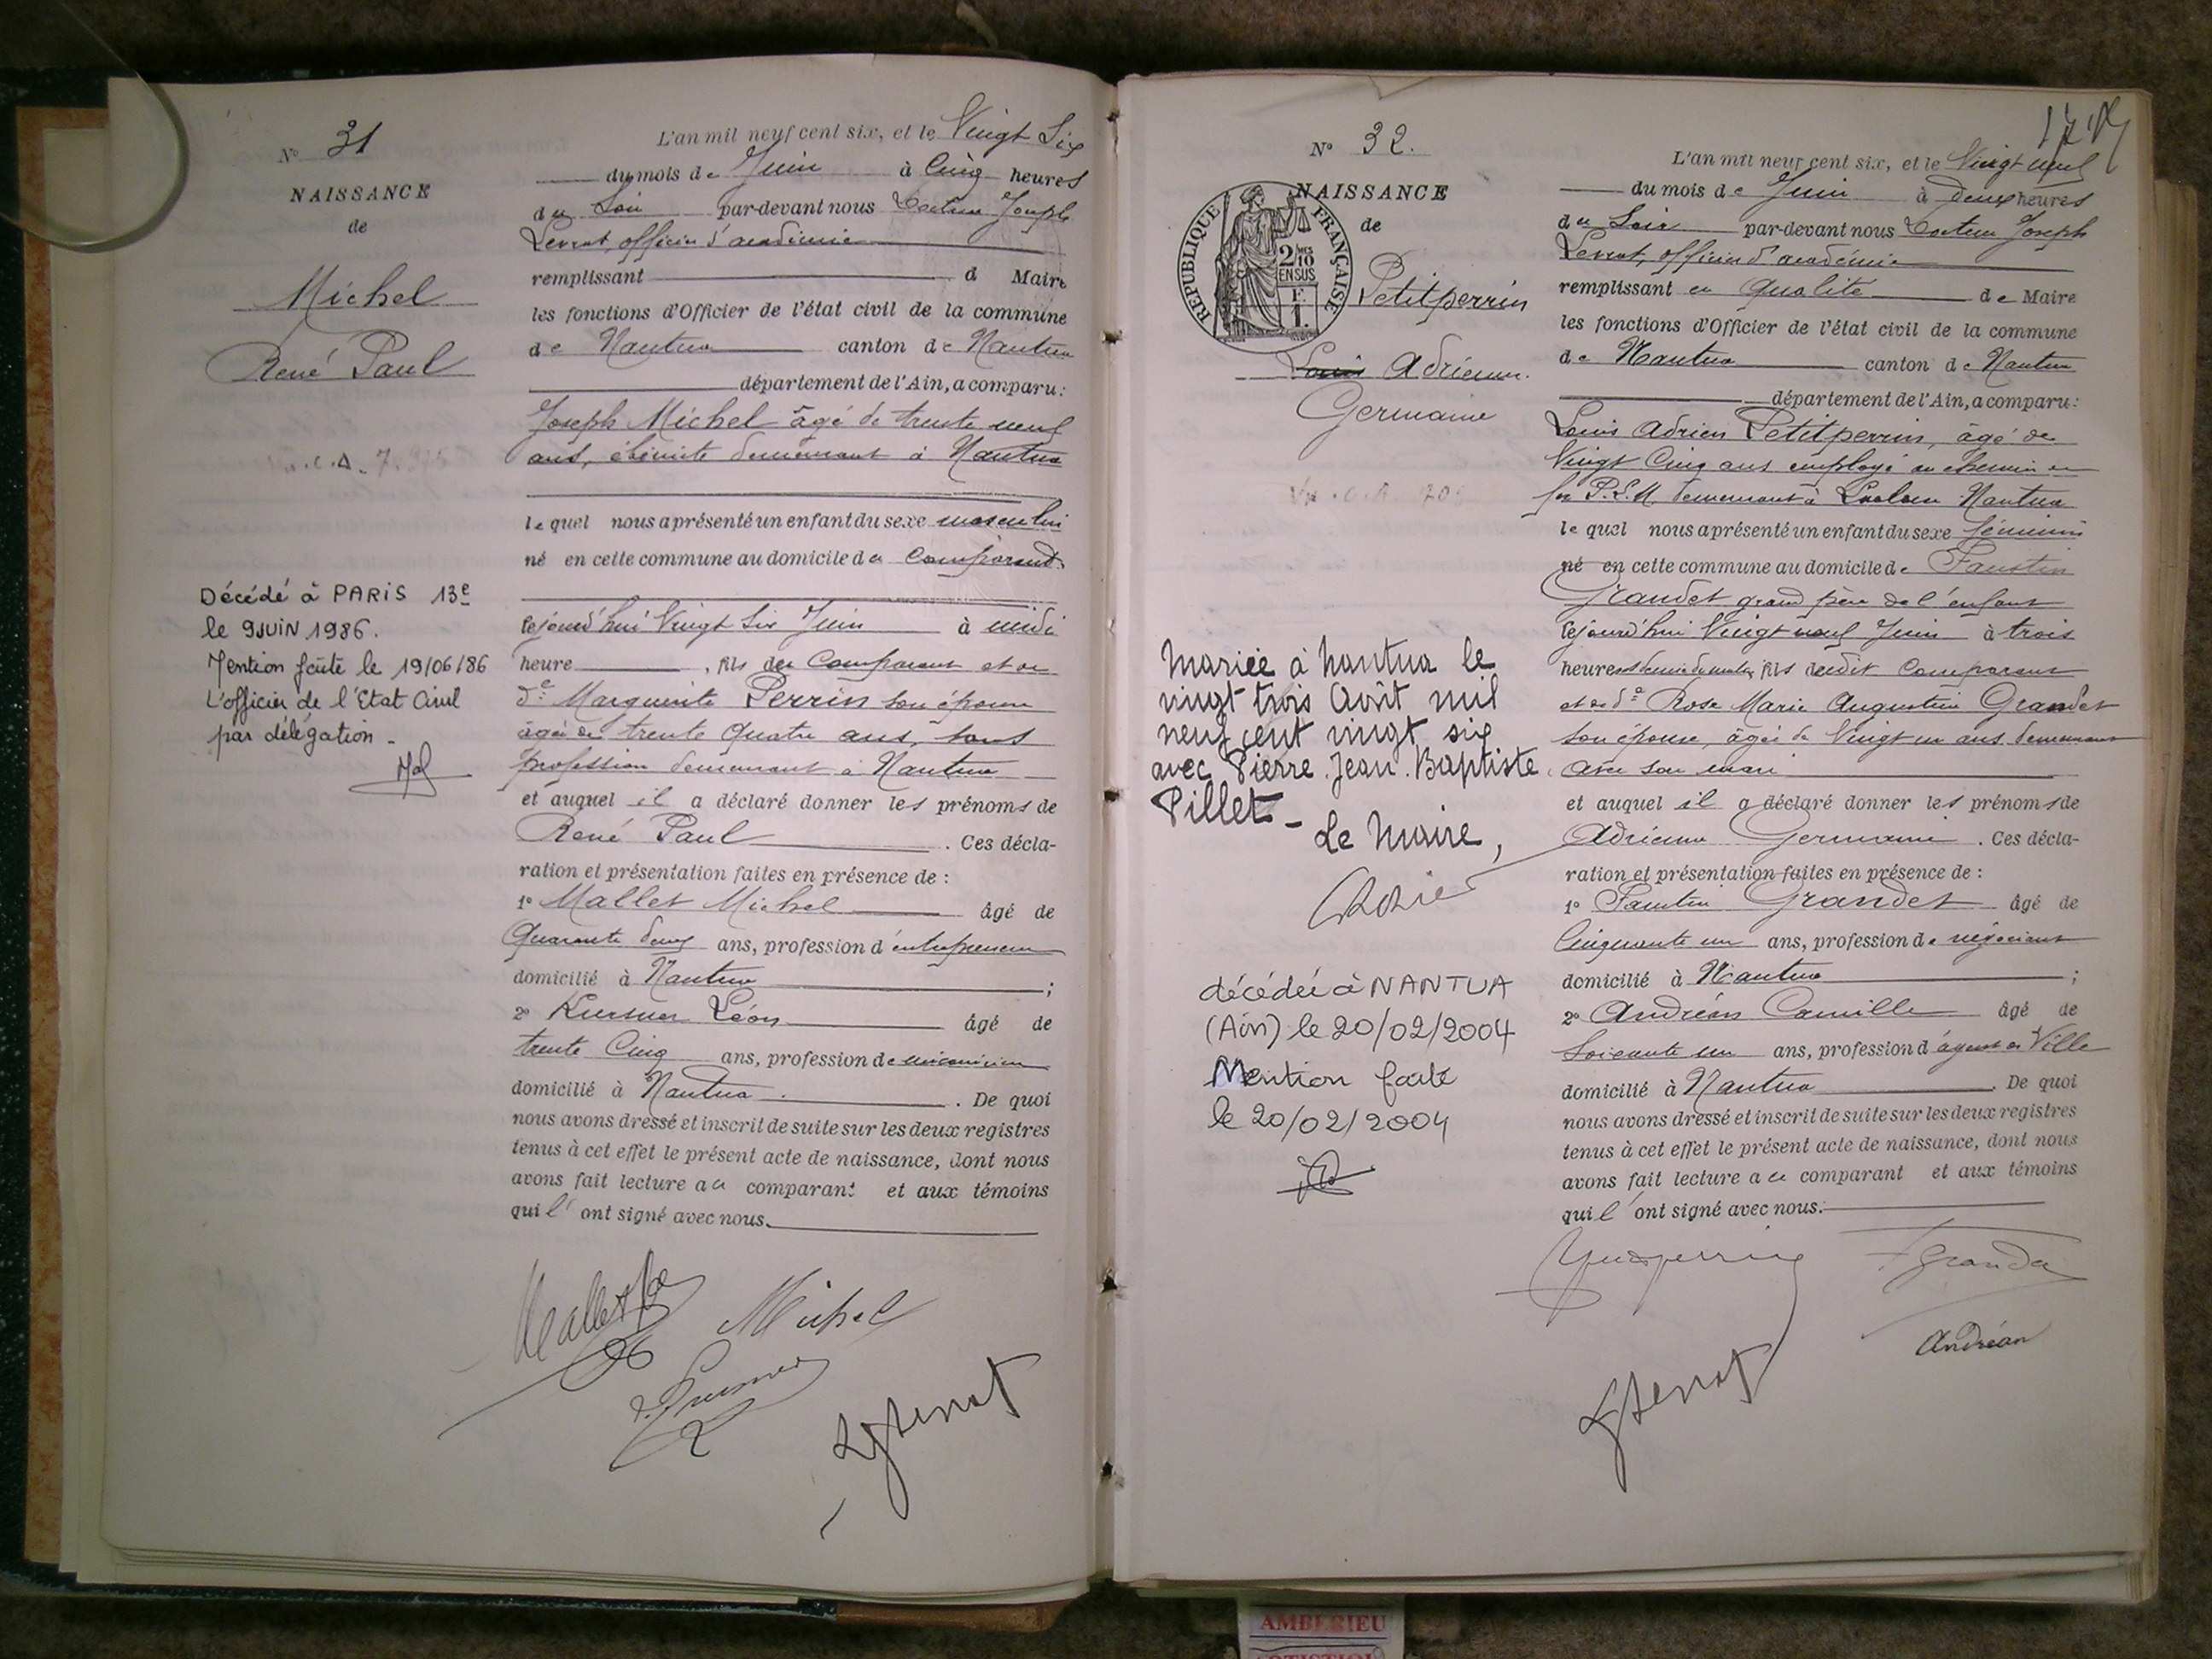 N° 31
NAISSANCE
de
Michel
René Paul
Décédé à PARIS 13e
le 9 JUIN 1986.
Mention faite le 19/06/86
L'officier de l'Etat Civil
par délégation -
L'an mil neuf cent six, et le Vingt Six
du mois de Juin à Cinq heures
du Soir par-devant nous Docteur Joseph
officier d'académie
remplissant d Maire
les fonctions d'Officier de l'état civil de la commune
de Nantua canton de Nantua
département de l'Ain, a comparu:
Joseph Michel âgé de trente neuf
ans, ébéniste demeurant à Nantua
lequel nous a présenté un enfant du sexe masculin
né en cette commune au domicile du Comparant
cejourd'hui Vingt Six Juin à midi
heure , fils du Comparant et de
de Marguerite Perrin son épouse
âgée de trente quatre ans, sans
profession demeurant à Nantua
et auquel il a déclaré donner les prénoms de
René Paul . Ces décla-
ration et présentation faites en présence de :
1° Mallet Michel âgé de
Quarante deux ans, profession d'entrepreneur
domicilié à Nantua ;
2° Léon âgé de
trente Cinq ans, profession de mécanicien
domicilié à Nantua . De quoi
nous avons dressé et inscrit de suite sur les deux registres
tenus à cet effet le présent acte de naissance, dont nous
avons fait lecture au comparant et aux témoins
qui l' ont signé avec nous.
Michel
N° 32.
NAISSANCE
de
RÉPUBLIQUE FRANÇAISE
2/10 MES
EN SUS
F.
1.
Petitperrin
Louis Adrienne
Germaine
Mariée à Nantua le
vingt trois Août mil
neuf cent vingt six
avec Pierre Jean-Baptiste
Pillet -
Le Maire,
décédée à NANTUA
(Ain) le 20/02/2004
Mention faite
le 20/02/2004
L'an mil neuf cent six, et le Vingt neuf
du mois de Juin à Deux heures
du Soir par-devant nous Docteur Joseph
officier d'académie
remplissant en Qualité de Maire
les fonctions d'Officier de l'état civil de la commune
de Nantua canton de Nantua
département de l'Ain, a comparu:
Louis Adrien Petitperrin, âgé de
Vingt Cinq ans employé au chemin de
fer P.L.M. demeurant à Nantua
lequel nous a présenté un enfant du sexe féminin
né en cette commune au domicile de Faustin
Grandet grand père de l'enfant
cejourd'hui Vingt neuf Juin à trois
heures demie du matin, fils dudit Comparant
et de de Rose Marie Augustine Grandet
son épouse, âgée de Vingt un ans demeurant
avec son mari
et auquel il a déclaré donner les prénoms de
Adrienne Germaine . Ces décla-
ration et présentation faites en présence de :
1° Faustin Grandet âgé de
Cinquante un ans, profession de négociant
domicilié à Nantua ;
2° Andréan Camille âgé de
Soixante un ans, profession d'agent de Ville
domicilié à Nantua . De quoi
nous avons dressé et inscrit de suite sur les deux registres
tenus à cet effet le présent acte de naissance, dont nous
avons fait lecture au comparant et aux témoins
qui l' ont signé avec nous.
Andréan
AMBERIEU